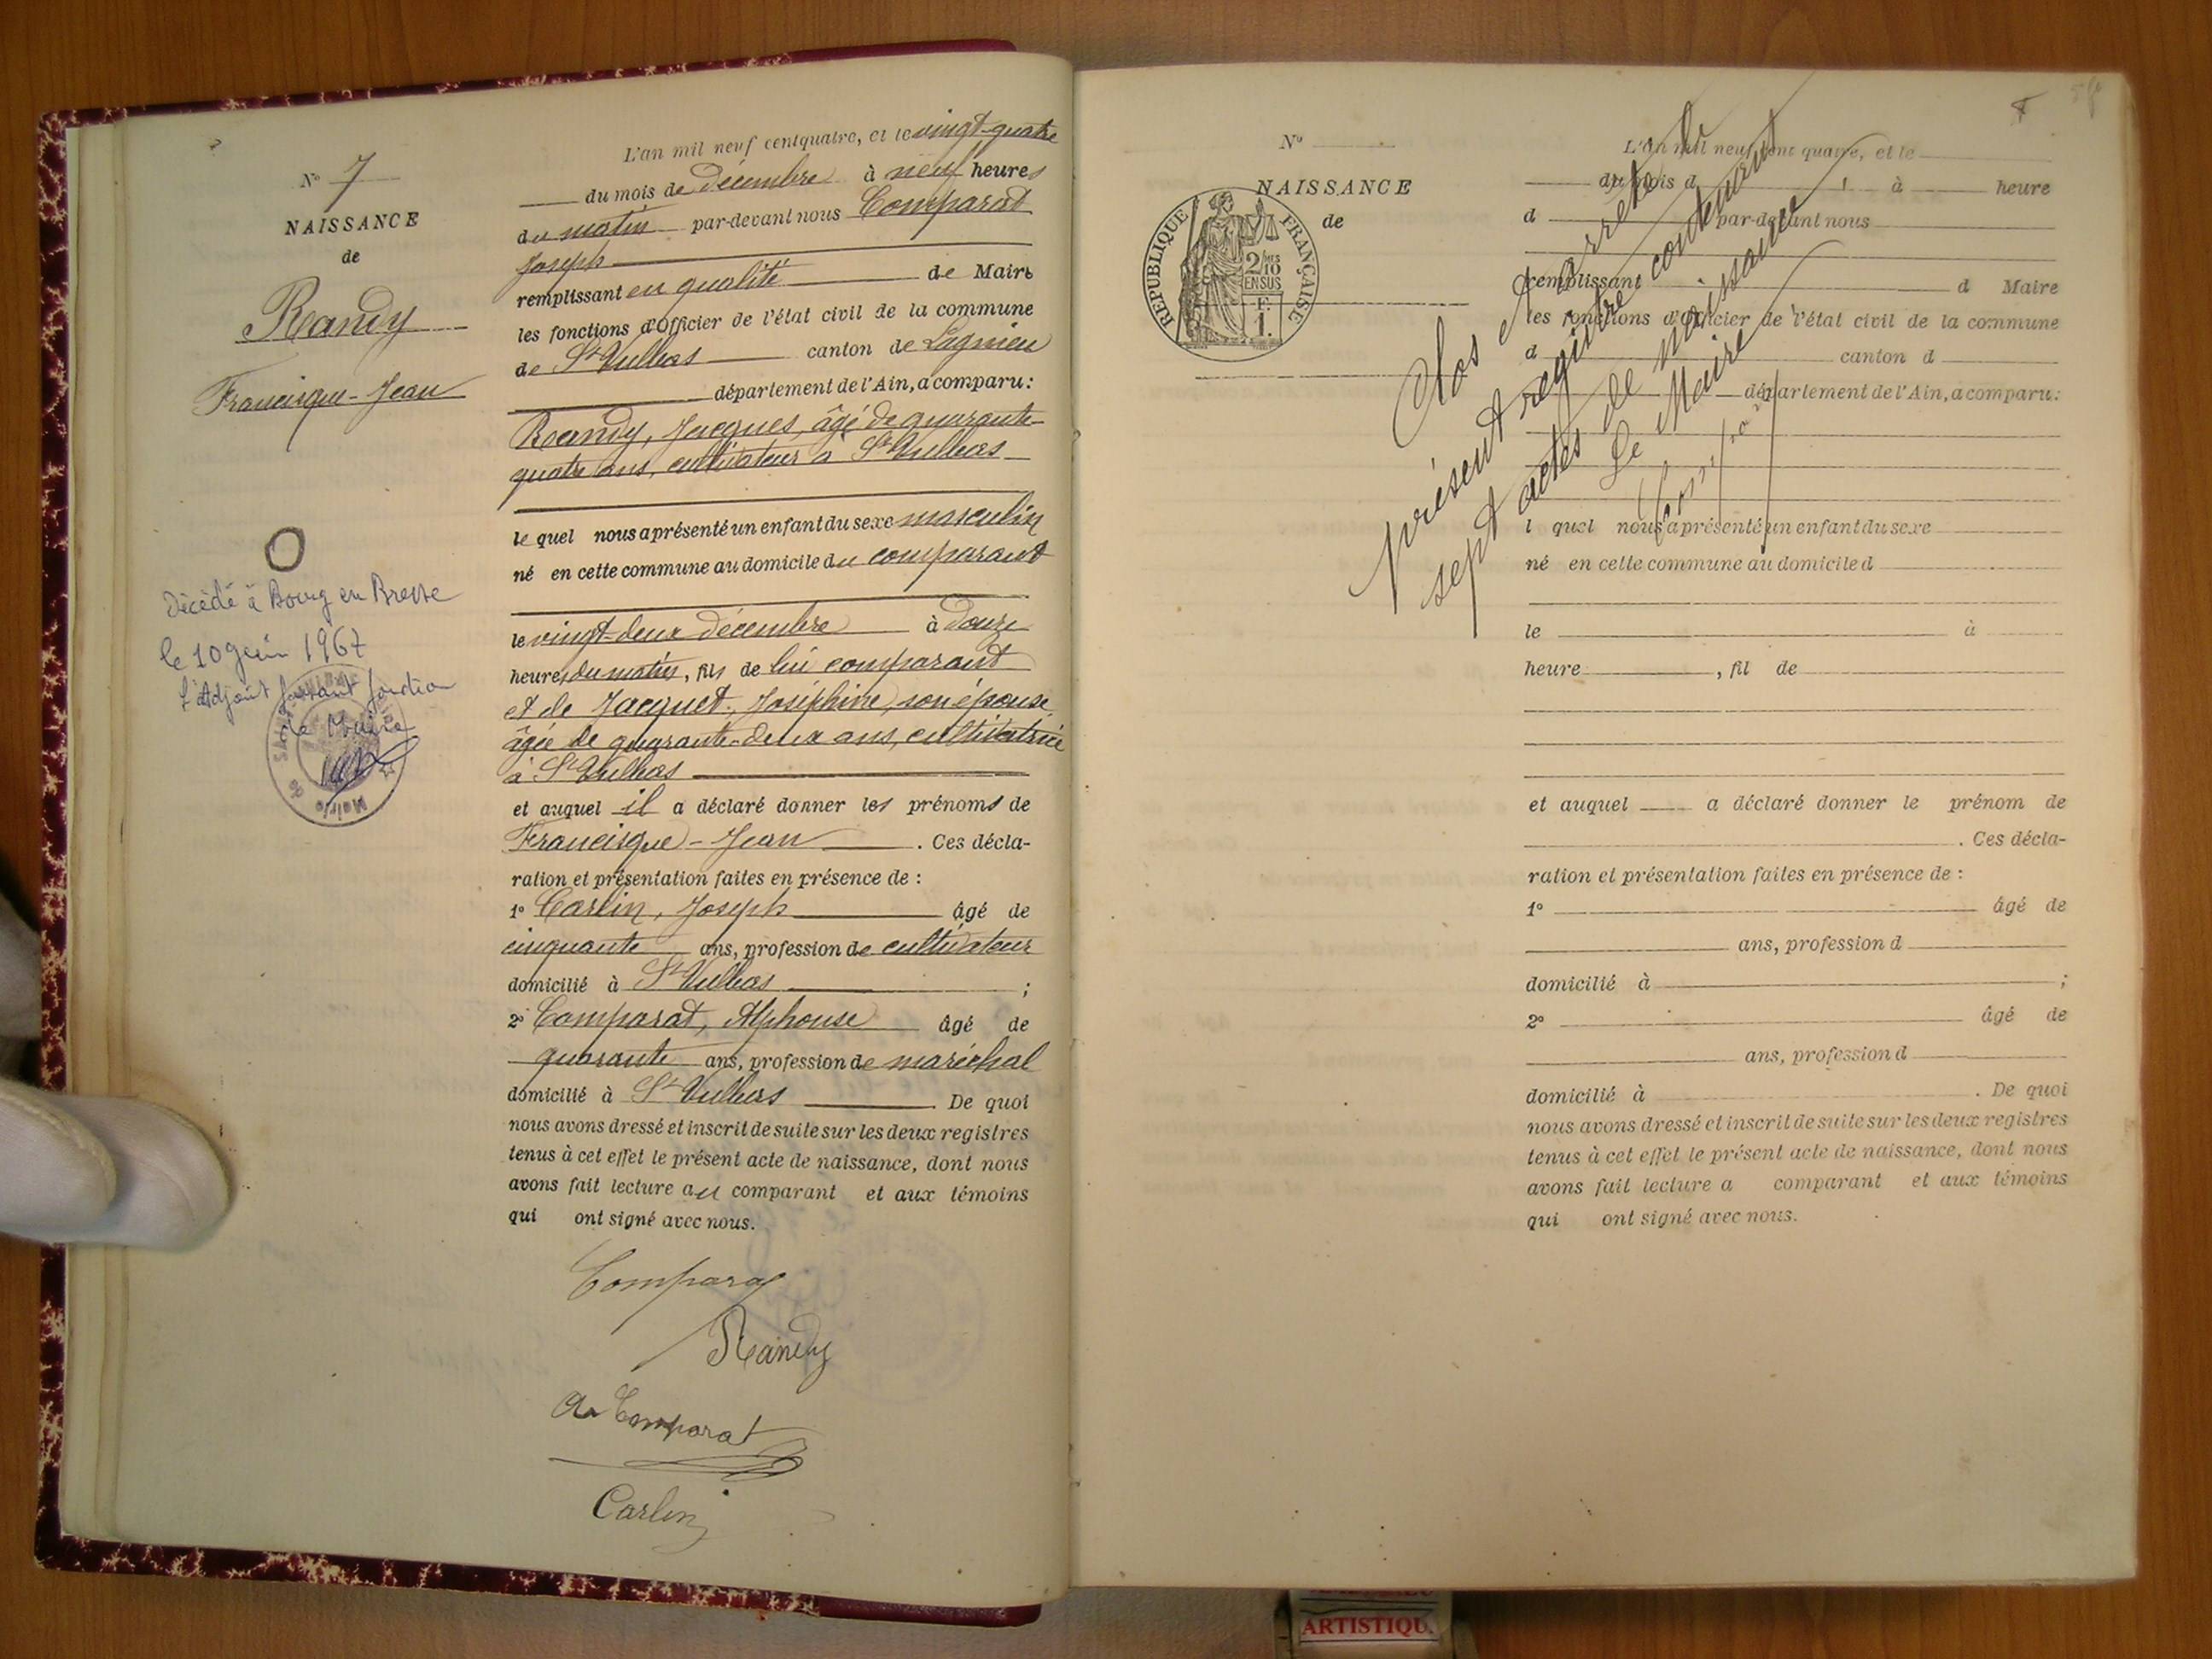 N° 7
NAISSANCE
de
Randy
Francisque-Jean
Décédé à Bourg en Bresse
le 10 juin 1967
L'Adjoint faisant fonction
de Maire
Mairie
L'an mil neuf cent quatre, et le vingt-quatre
du mois de décembre à neuf heures
du matin par-devant nous Comparat
Joseph
remplissant en qualité de Maire
les fonctions d'Officier de l'état civil de la commune
de St Vulbas canton de Lagnieu
département de l'Ain, a comparu:
Randy, Jacques, âgé de quarante-
quatre ans, cultivateur à St Vulbas
le quel nous a présenté un enfant du sexe masculin
né en cette commune au domicile du comparant
le vingt-deux décembre à douze
heures du matin, fils de lui comparant
et de Jacquet, Joséphine, son épouse
âgée de quarante-deux ans, cultivatrice
à St Vulbas
et auquel il a déclaré donner les prénoms de
Francisque-Jean. Ces décla-
ration et présentation faites en présence de :
1° Carlin, Joseph âgé de
cinquante ans, profession de cultivateur
domicilié à St Vulbas ;
2° Comparat, Alphonse âgé de
quarante ans, profession de maréchal
domicilié à St Vulbas. De quoi
nous avons dressé et inscrit de suite sur les deux registres
tenus à cet effet le présent acte de naissance, dont nous
avons fait lecture au comparant et aux témoins
qui ont signé avec nous.
Comparat
Randy
A. Comparat
Carlin
N°
NAISSANCE
de
REPUBLIQUE FRANÇAISE
2/10
EN SUS
F.
1.
L'an mil neuf cent quatre, et le
du mois d à heure
d par-devant nous
remplissant d Maire
les fonctions d'Officier de l'état civil de la commune
d canton d
département de l'Ain, a comparu:
l quel nous a présenté un enfant du sexe
né en cette commune au domicile d
le à
heure , fil de
et auquel a déclaré donner le prénom de
. Ces décla-
ration et présentation faites en présence de :
1° âgé de
ans, profession d
domicilié à ;
2° âgé de
ans, profession d
domicilié à . De quoi
nous avons dressé et inscrit de suite sur les deux registres
tenus à cet effet le présent acte de naissance, dont nous
avons fait lecture a comparant et aux témoins
qui ont signé avec nous.
Clos et arrêté le
présent registre contenant
sept actes de naissance
Le Maire
Comparat
ARTISTIQU